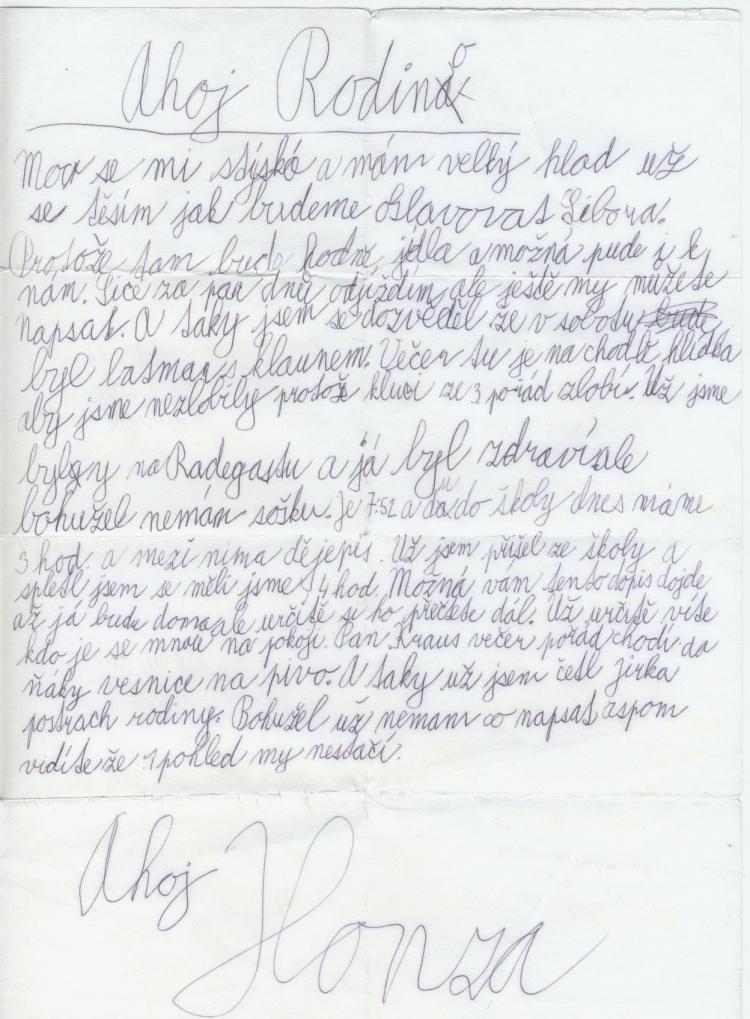 Ahoj Rodino
Moc se mi stýská a mám velký hlad už
se těším jak budeme oslavovat Libora.
Protože tam bude hodně jídla a možná pude i k
nám. Sice za pár dnů odjíždím, ale ještě my můžete
napsat. A taky jsem se dozvěděl že v sobotu
byl batman s klaunem. Večer tu je na chodbě hlídka
aby jsme nezlobily protože kluci ze 3 pořád zlobí. Už jsme
byly na Radegastu a já byl zdraví ale
bohužel nemám sošku. Je 7:52 a du do školy dnes máme
3 hod. a mezi nima dějepis. Už jsem přišel ze školy a
spletl jsem se měli jsme 4 hod. Možná vám tento dopis dojde
až já budu doma ale určitě si ho přečtete dál. Už určitě víte
kdo je se mnou na pokoji. Pan Kraus večer pořád chodí do
ňáky vesnice na pivo. A taky už jsem četl Jirka
postrach rodiny. Bohužel už nemam co napsat aspom
vidíte že 1 pohled my nestačí.
Ahoj
Honza